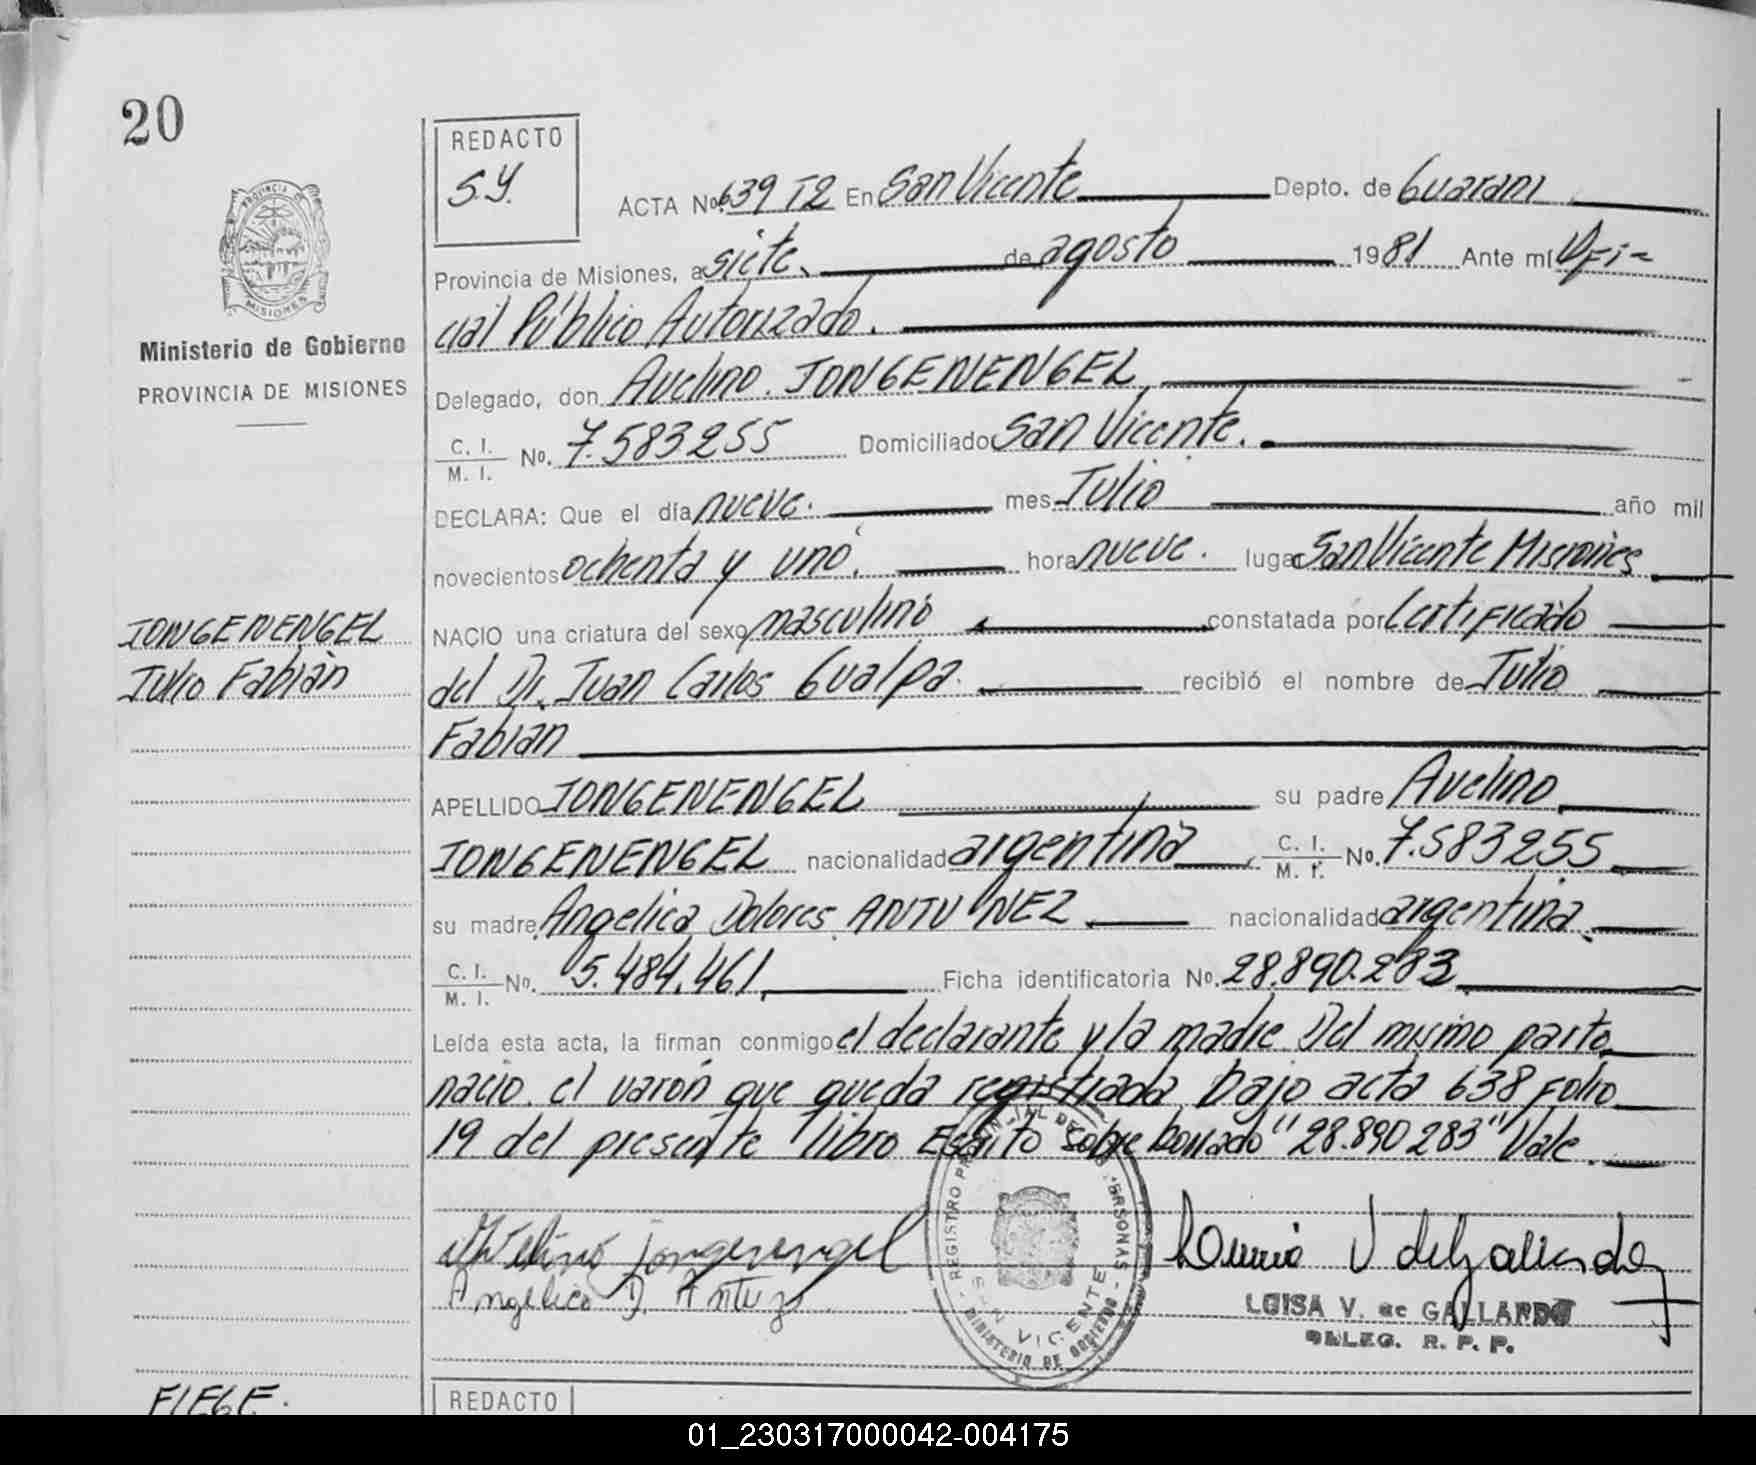 20
REDACTO
S.Y.
ACTA No. 639 T2 En San Vicente Depto. de Guarani
Provincia de Misiones, a siete de agosto 1981 Ante mí Ofi-
cial Público Autorizado.
PROVINCIA
MISIONES
Ministerio de Gobierno
PROVINCIA DE MISIONES
Delegado, don Avelino JONGENENGEL
C. I. / M. I. No. 7.583255 Domiciliado San Vicente.
DECLARA: Que el día nueve. mes Julio año mil
novecientos ochenta y uno. hora nueve. lugar San Vicente Misiones
JONGENENGEL
Julio Fabián
NACIO una criatura del sexo masculino constatada por Certificado
del Dr. Juan Carlos Gualpa. recibió el nombre de Julio
Fabian
APELLIDO JONGENENGEL su padre Avelino
JONGENENGEL nacionalidad argentina C. I. / M. I. No. 7.583255
su madre Angelica Dolores ANTUNEZ nacionalidad argentina
C. I. / M. I. No. 5.484.461 Ficha identificatoria No. 28.890.283
Leída esta acta, la firman conmigo el declarante y la madre Del mismo parto
nacio el varón que queda registrada bajo acta 638 Folio
19 del presente libro Escrito sobre borrado "28.890283" Vale.
Avelino jongenengel
Angelica D. Antuz
REGISTRO PROVINCIAL DE LAS PERSONAS
SAN VICENTE
MINISTERIO DE GOBIERNO
Luisa V de Gallardo
LUISA V. de GALLARDO
DELEG. R. P. P.
FIEGE.
REDACTO
01_230317000042-004175